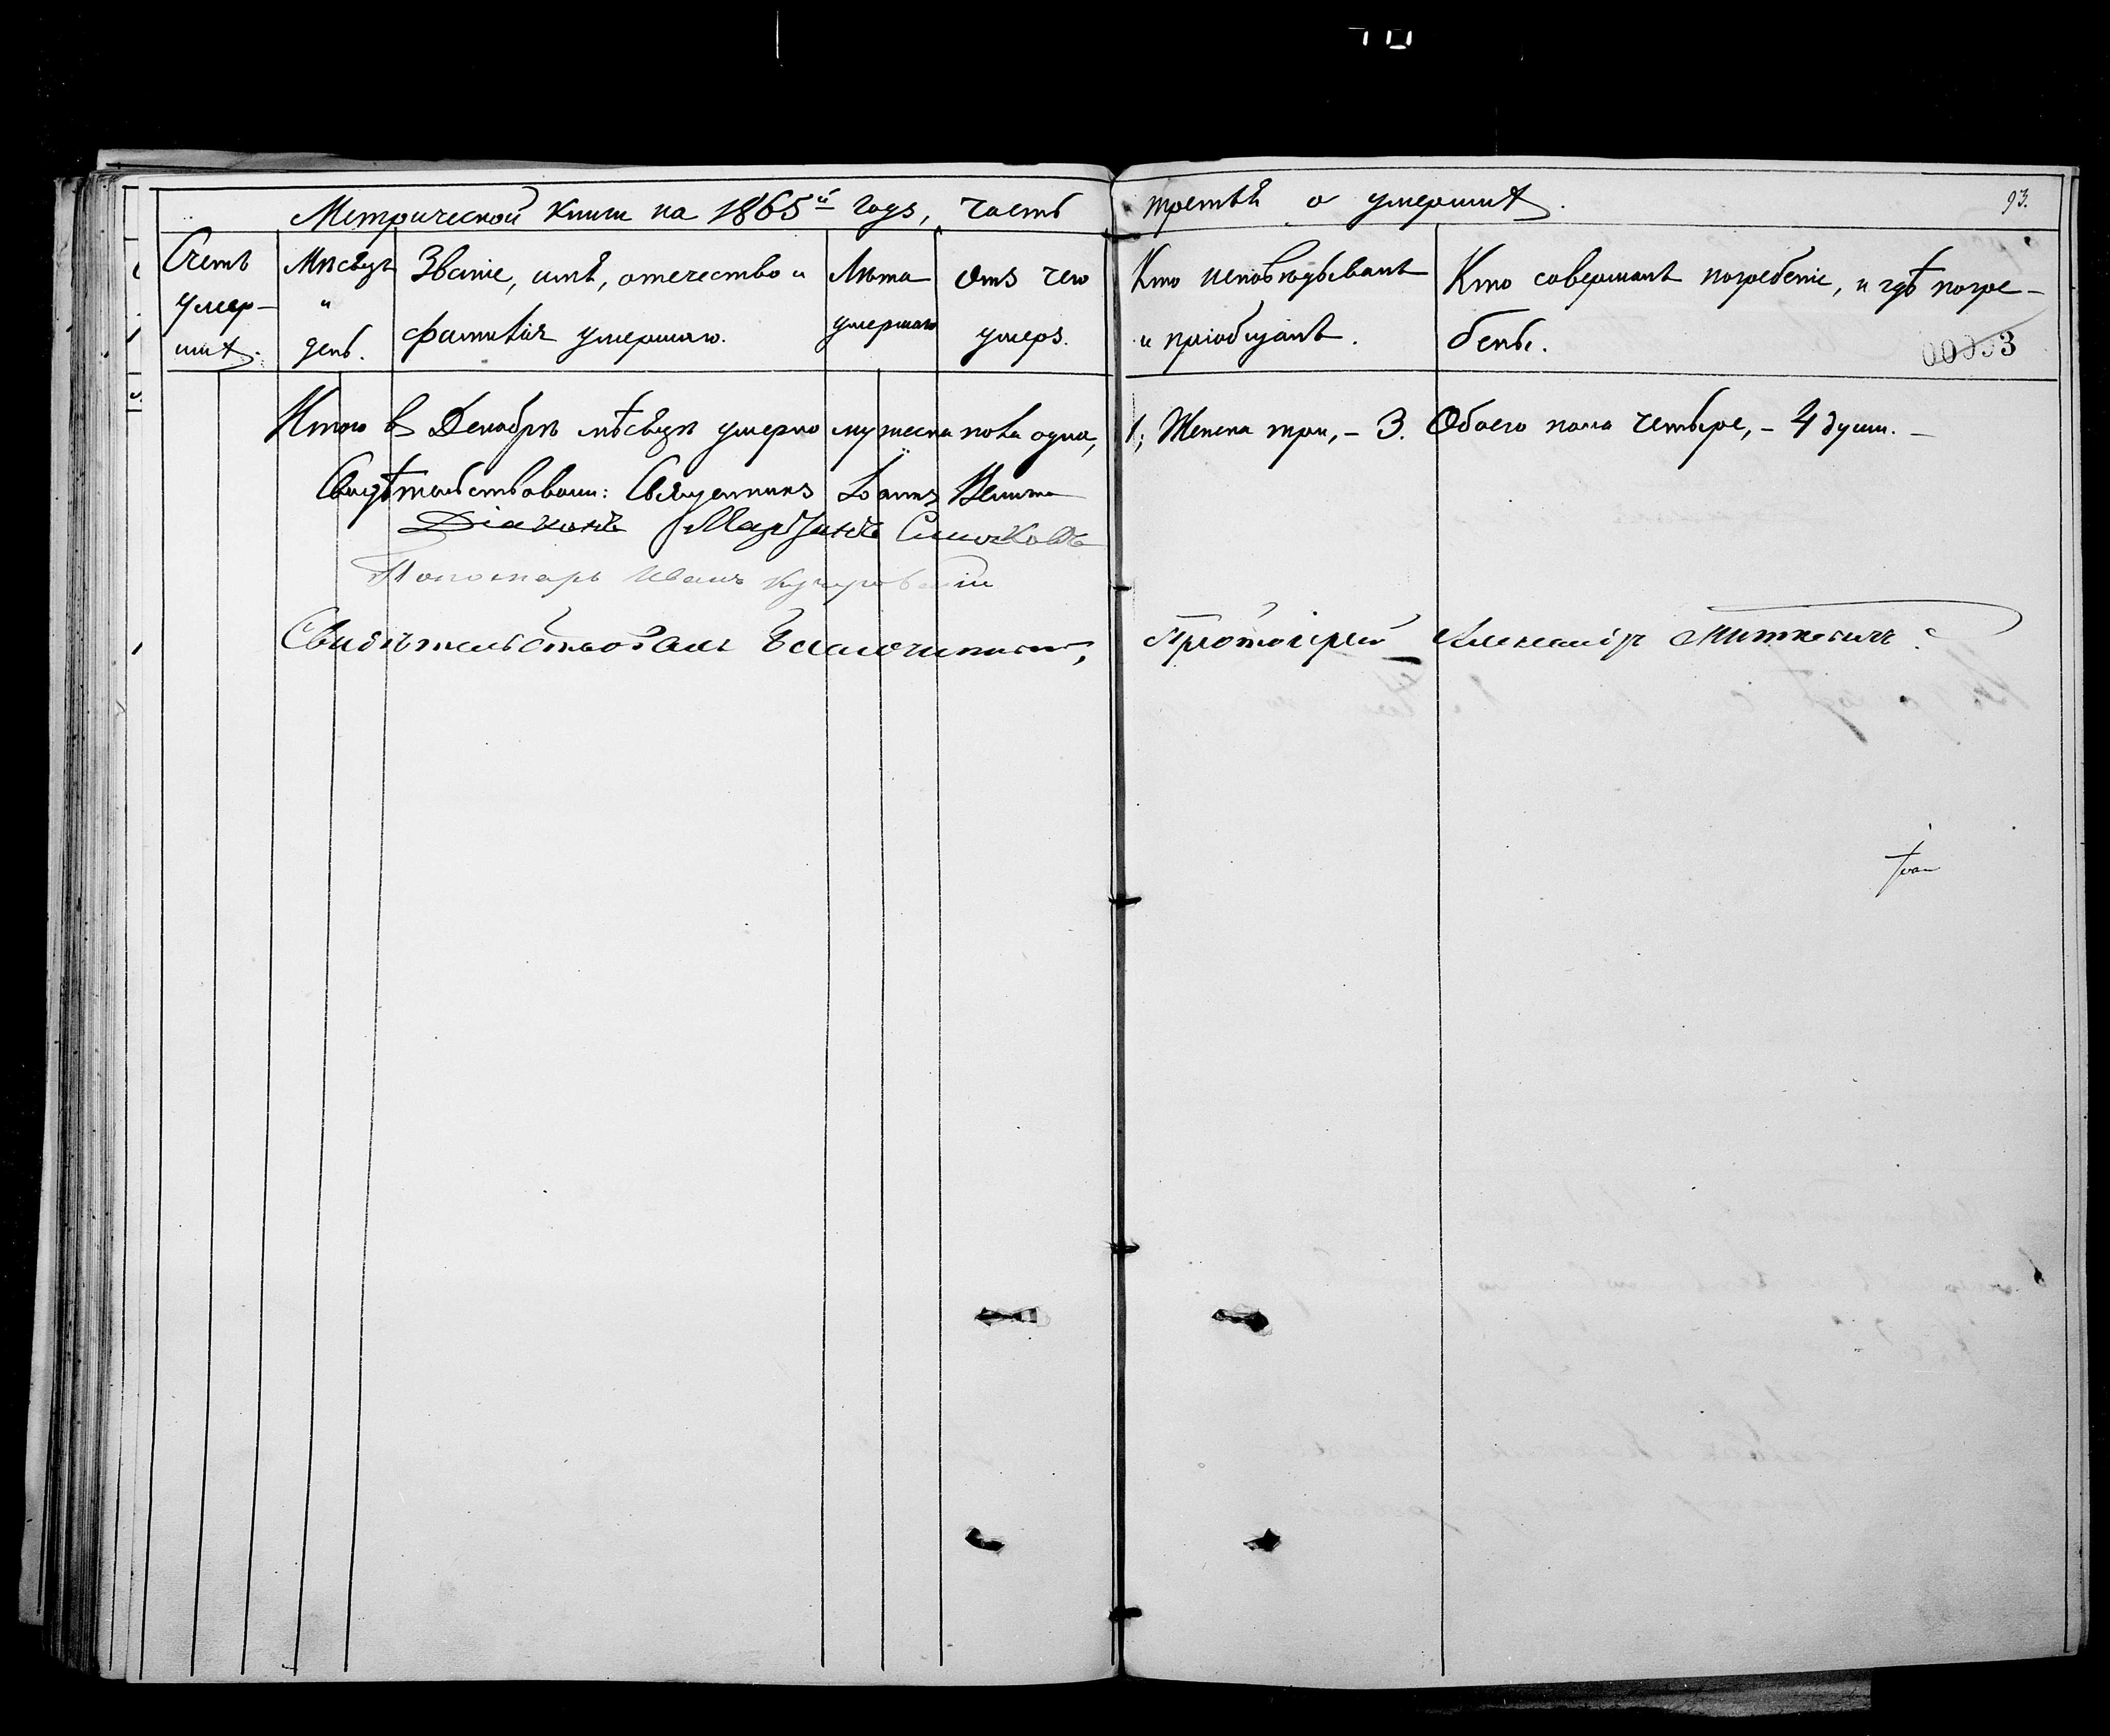 Метрической книги на 1865й годъ, часть третья о умершихъ.
93.
Счетъ умер-шихъ.
Мѣсяцъ и день.
Званіе, имя, отечество и фамилія умершаго.
Лѣта умершаго
Отъ чего умеръ.
Кто исповѣдывалъ и пріобщалъ.
Кто совершалъ погребеніе, и гдѣ погре-бены.
00093
Итого въ Декабрѣ мѣсяцѣ умерло мужеска пола одна, 1; Женска три, – 3. Обоего пола четыре, – 4 души. –
Свидѣтельствовали: Священникъ Іоаннъ
Діаконъ
Пономарь Иванъ
Свидѣтельствовалъ Благочинный, Протоіерей Александръ Миткевичъ.